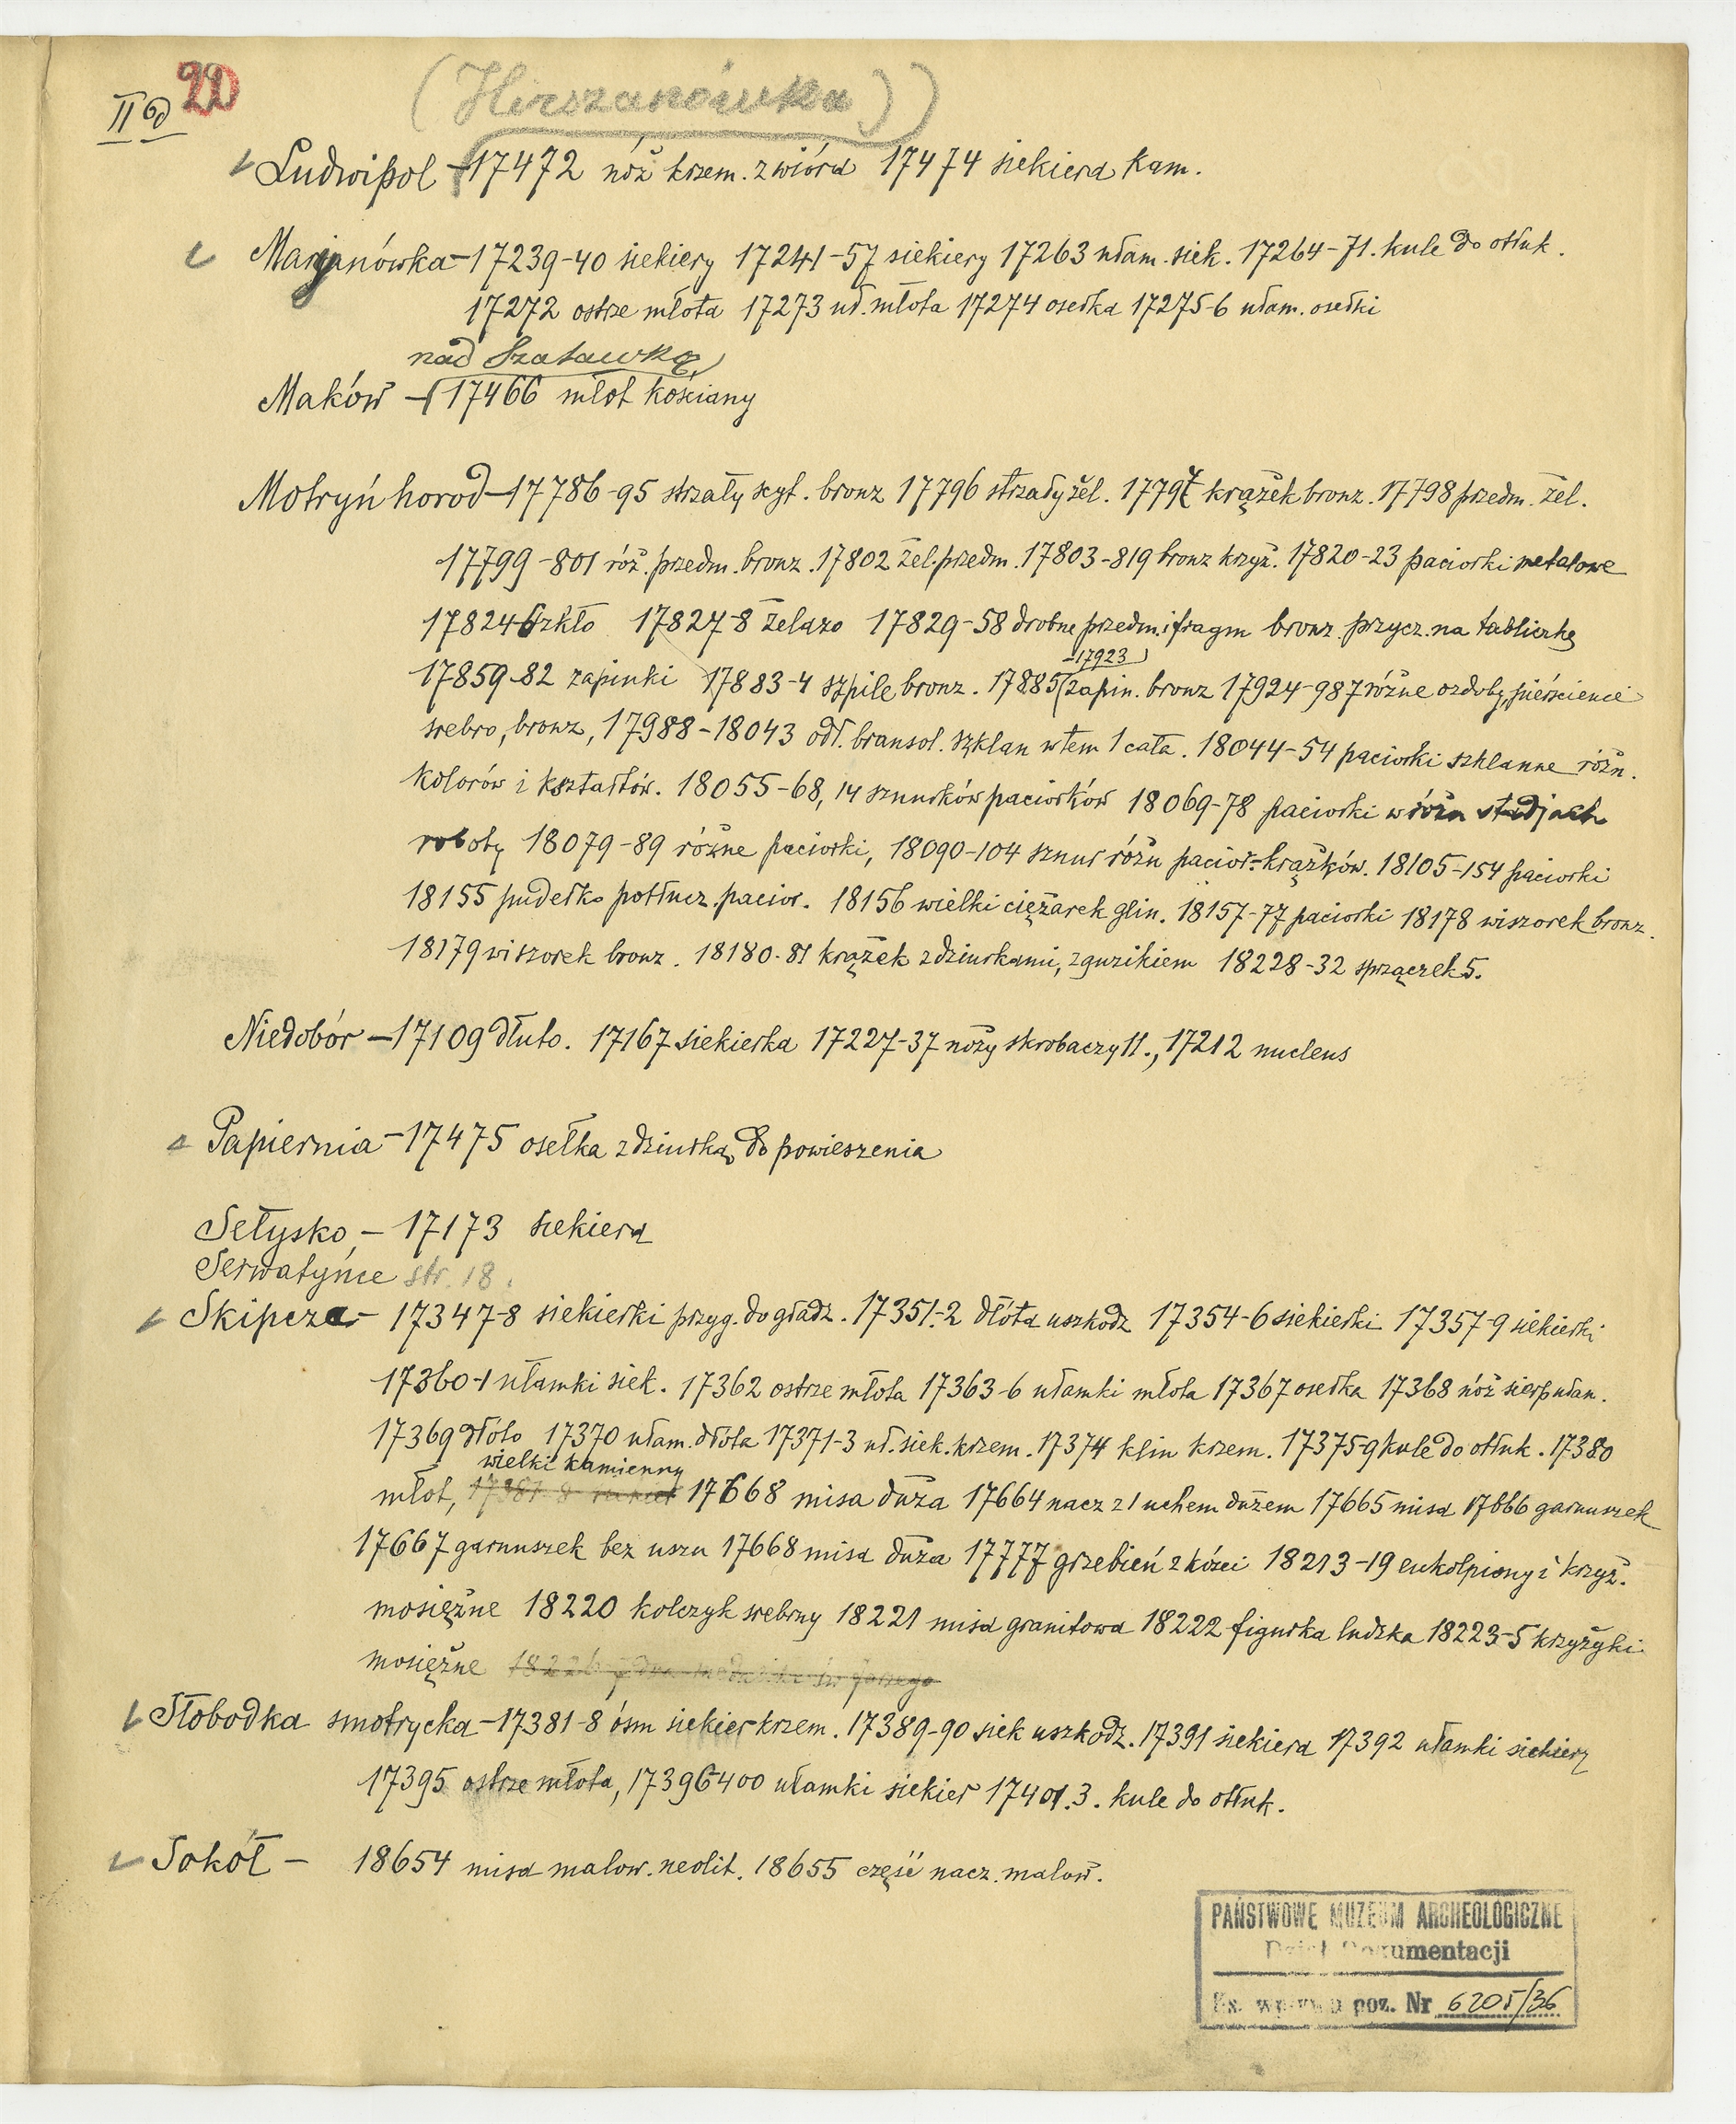 II 6d 22
(Hirszanówka)
Ludwipol – 17472 nóż krzem. z wióra 17474 siekiera kam.
Marjanówka – 17239-40 siekiery 17241-57 siekiery 17263 ułam. siek. 17264-71. kule do otłuk.
17272 ostrze młota 17273 uł. młota 17274 osełka 17275-6 ułam. osełki
nad Szatawką
Maków – 17466 młot kościany
Motryń horod – 17786-95 strzały scyt. bronz 17796 strzały żel. 17797 krążek bronz. 17798 przedm. żel.
17799-801 róż. przedm. bronz. 17802 żel. przedm. 17803-819 bronz krzyż. 17820-23 paciorki metalowe
17824 szkło 17827-8 żelazo 17829-58 drobne przedm. i fragm bronz. przycz. na tabliczkę
-17923
17859-82 zapinki 17883-4 szpile bronz. 17885 zapin. bronz 17924-987 różne ozdoby, pierścienie
srebro, bronz, 17988-18043 odł. bransol. szklan w tem 1 cała. 18044-54 paciorki szklanne różn.
kolorów i kształtów. 18055-68, 14 sznurków paciorków 18069-78 paciorki w różn stadjach
roboty 18079-89 różne paciorki, 18090-104 sznur różn pacior.-krążków. 18105-154 paciorki
18155 pudełko potłucz. pacior. 18156 wielki ciężarek glin. 18157-77 paciorki 18178 wiszorek bronz.
18179 wiszorek bronz. 18180-81 krążek z dziurkami, z guzikiem 18228-32 sprzączek 5.
Niedobór – 17109 dłuto. 17167 siekierka 17227-37 noży skrobaczy 11., 17212 nucleus
Papiernia – 17475 osełka z dziurką do powieszenia
Sełysko – 17173 siekiera
Serwatyńce str. 18.
Skipcze – 17347-8 siekierki przyg. do gładz. 17351-2 dłóta uszkodz 17354-6 siekierki 17357-9 siekierki
17360-1 ułamki siek. 17362 ostrze młota 17363-6 ułamki młota 17367 osełka 17368 nóż sierp ułam.
17369 dłóto 17370 ułam. dłóta 17371-3 uł. siek. krzem. 17374 klin krzem. 17375-9 kule do otłuk. 17380
wielki kamienny
młot, 17381-8 siekier 17668 misa duża 17664 nacz z 1 uchem dużem 17665 misa 17666 garnuszek
17667 garnuszek bez uszu 17668 misa duża 17777 grzebień z kości 18213-19 enkolpiony i krzyż.
mosiężne 18220 kolczyk srebrny 18221 misa granitowa 18222 figurka ludzka 18223-5 krzyżyki
mosiężne 18226
Słobodka smotrycka – 17381-8 ósm siekier krzem. 17389-90 siek uszkodz. 17391 siekiera 17392 ułamki siekiery
17395 ostrze młota, 17396-400 ułamki siekier 17401.3. kule do otłuk.
Sokół – 18654 misa malow. neolit. 18655 część nacz. malow.
PAŃSTWOWE MUZEUM ARCHEOLOGICZNE
Dział Dokumentacji
poz. Nr 6205/36